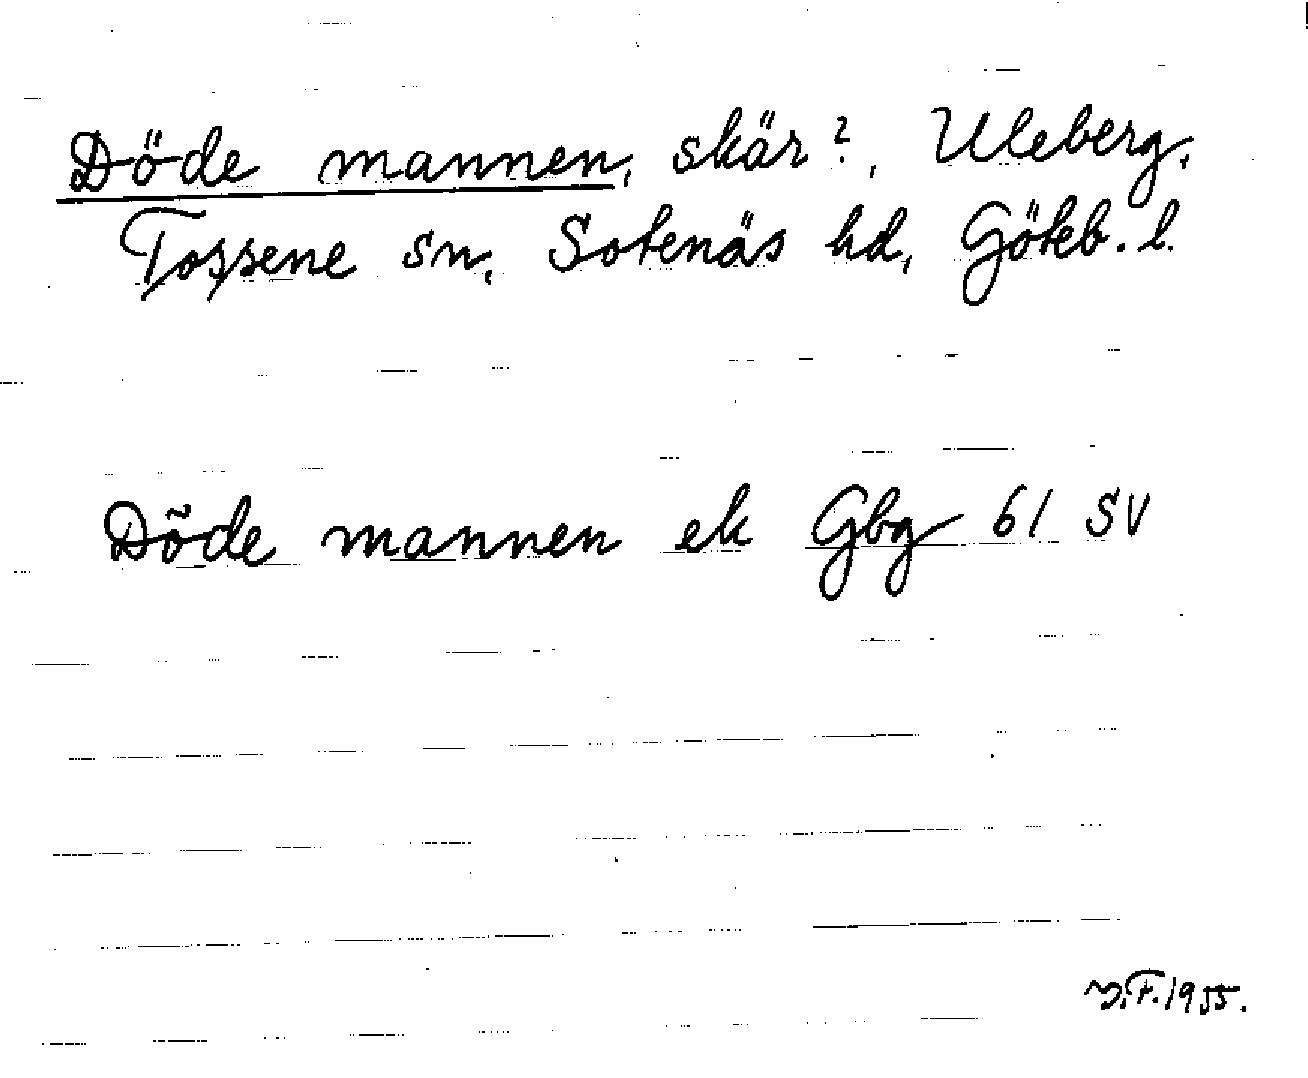 Döde mannen, skär?, Uleberg,
Tossene sn, Sotenäs hd, Göteb. l.
Döde mannen ek Gbg 61 SV
V.F. 1955.